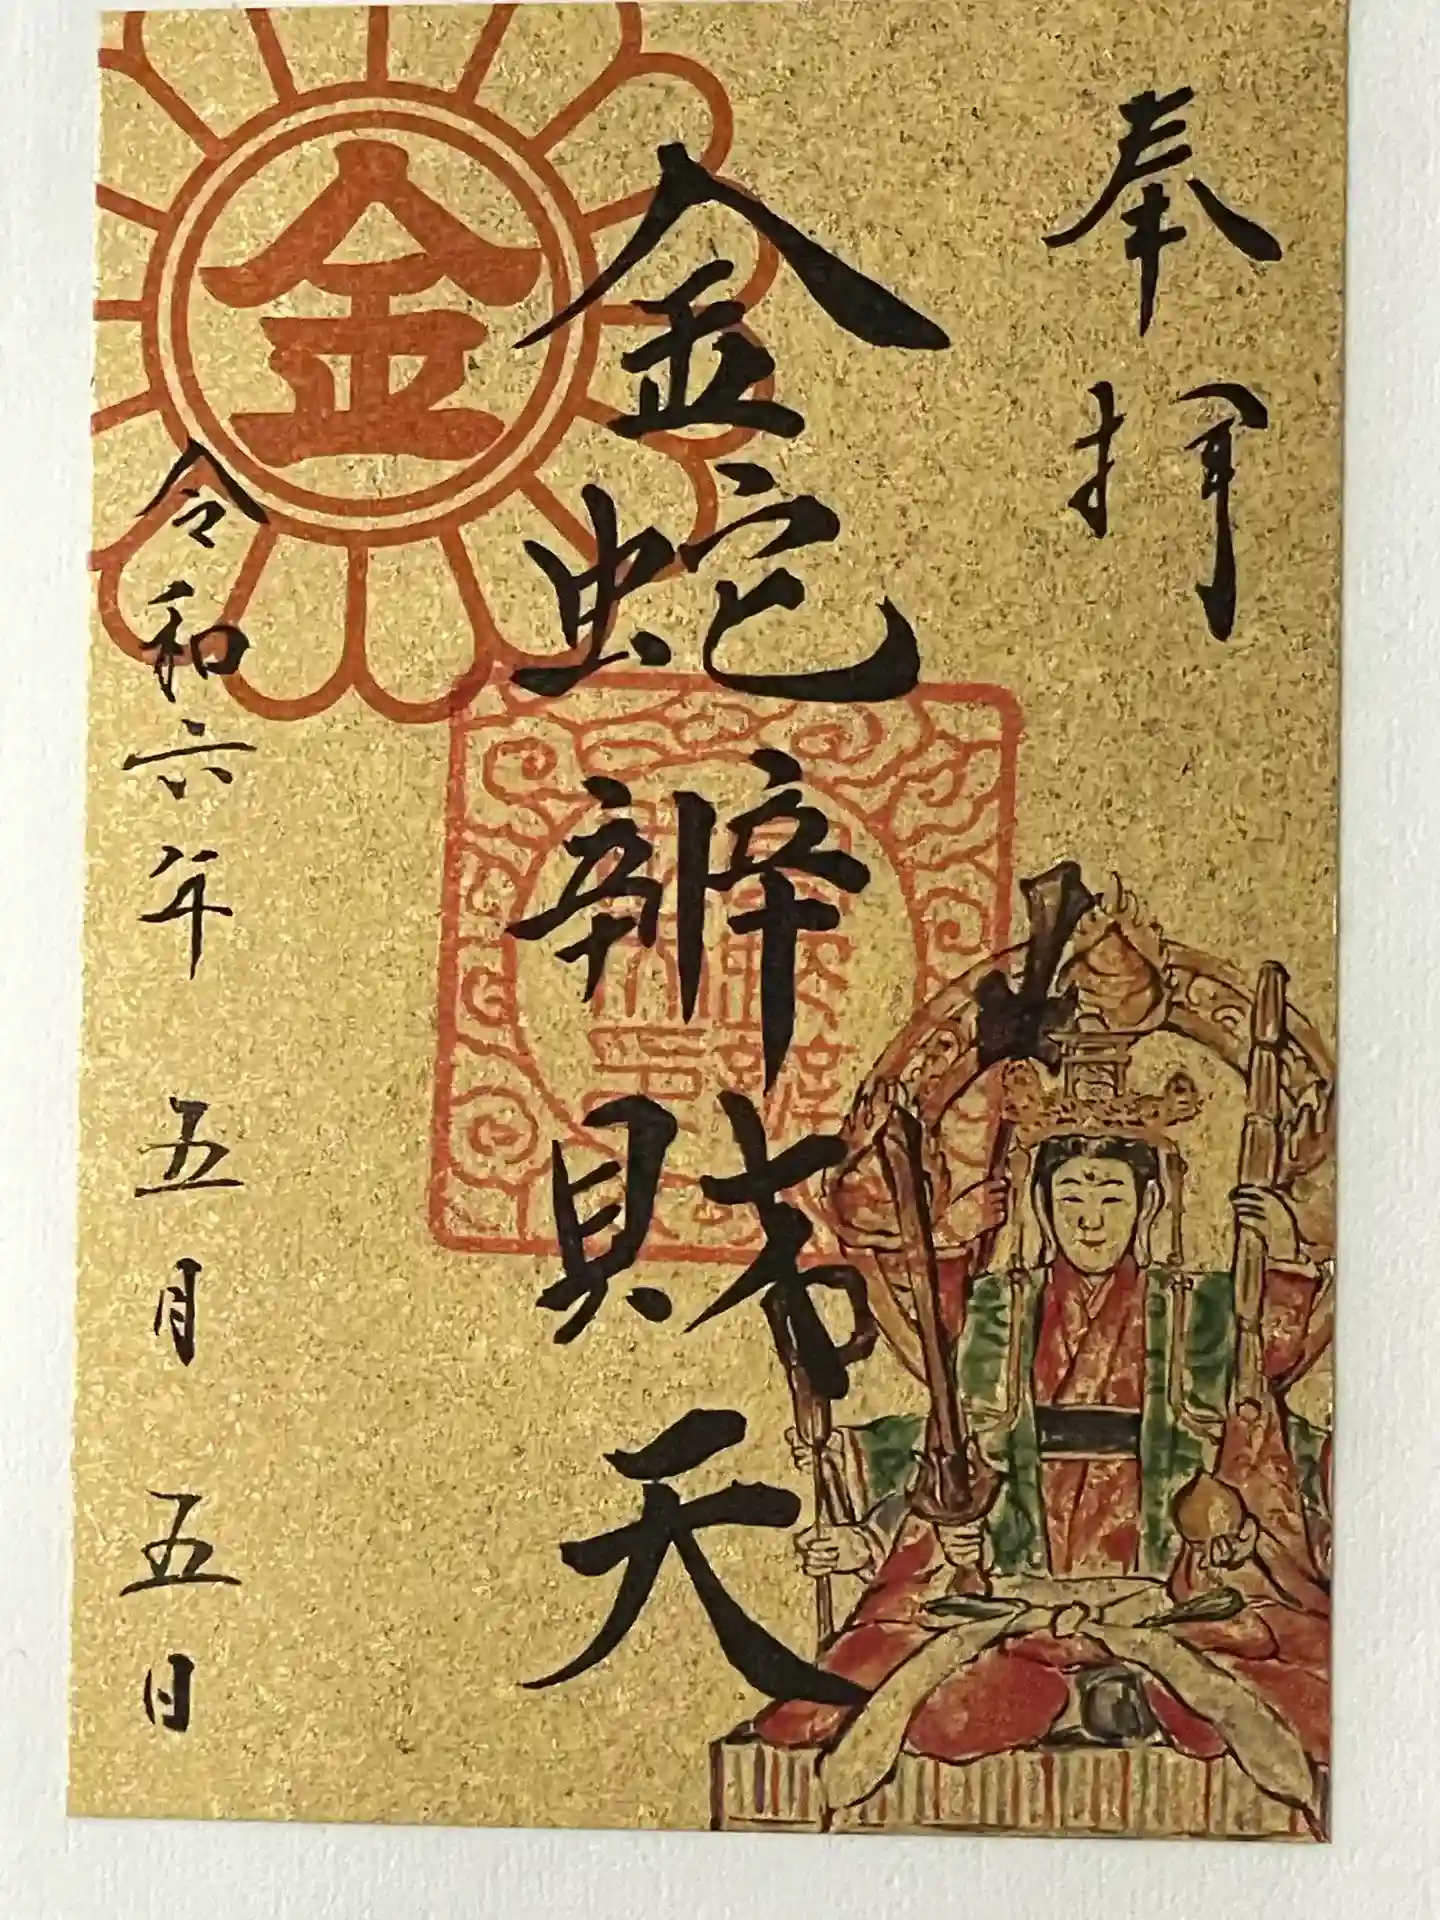 奉拝
金蛇辨財天
金
令和六年 五月 五日